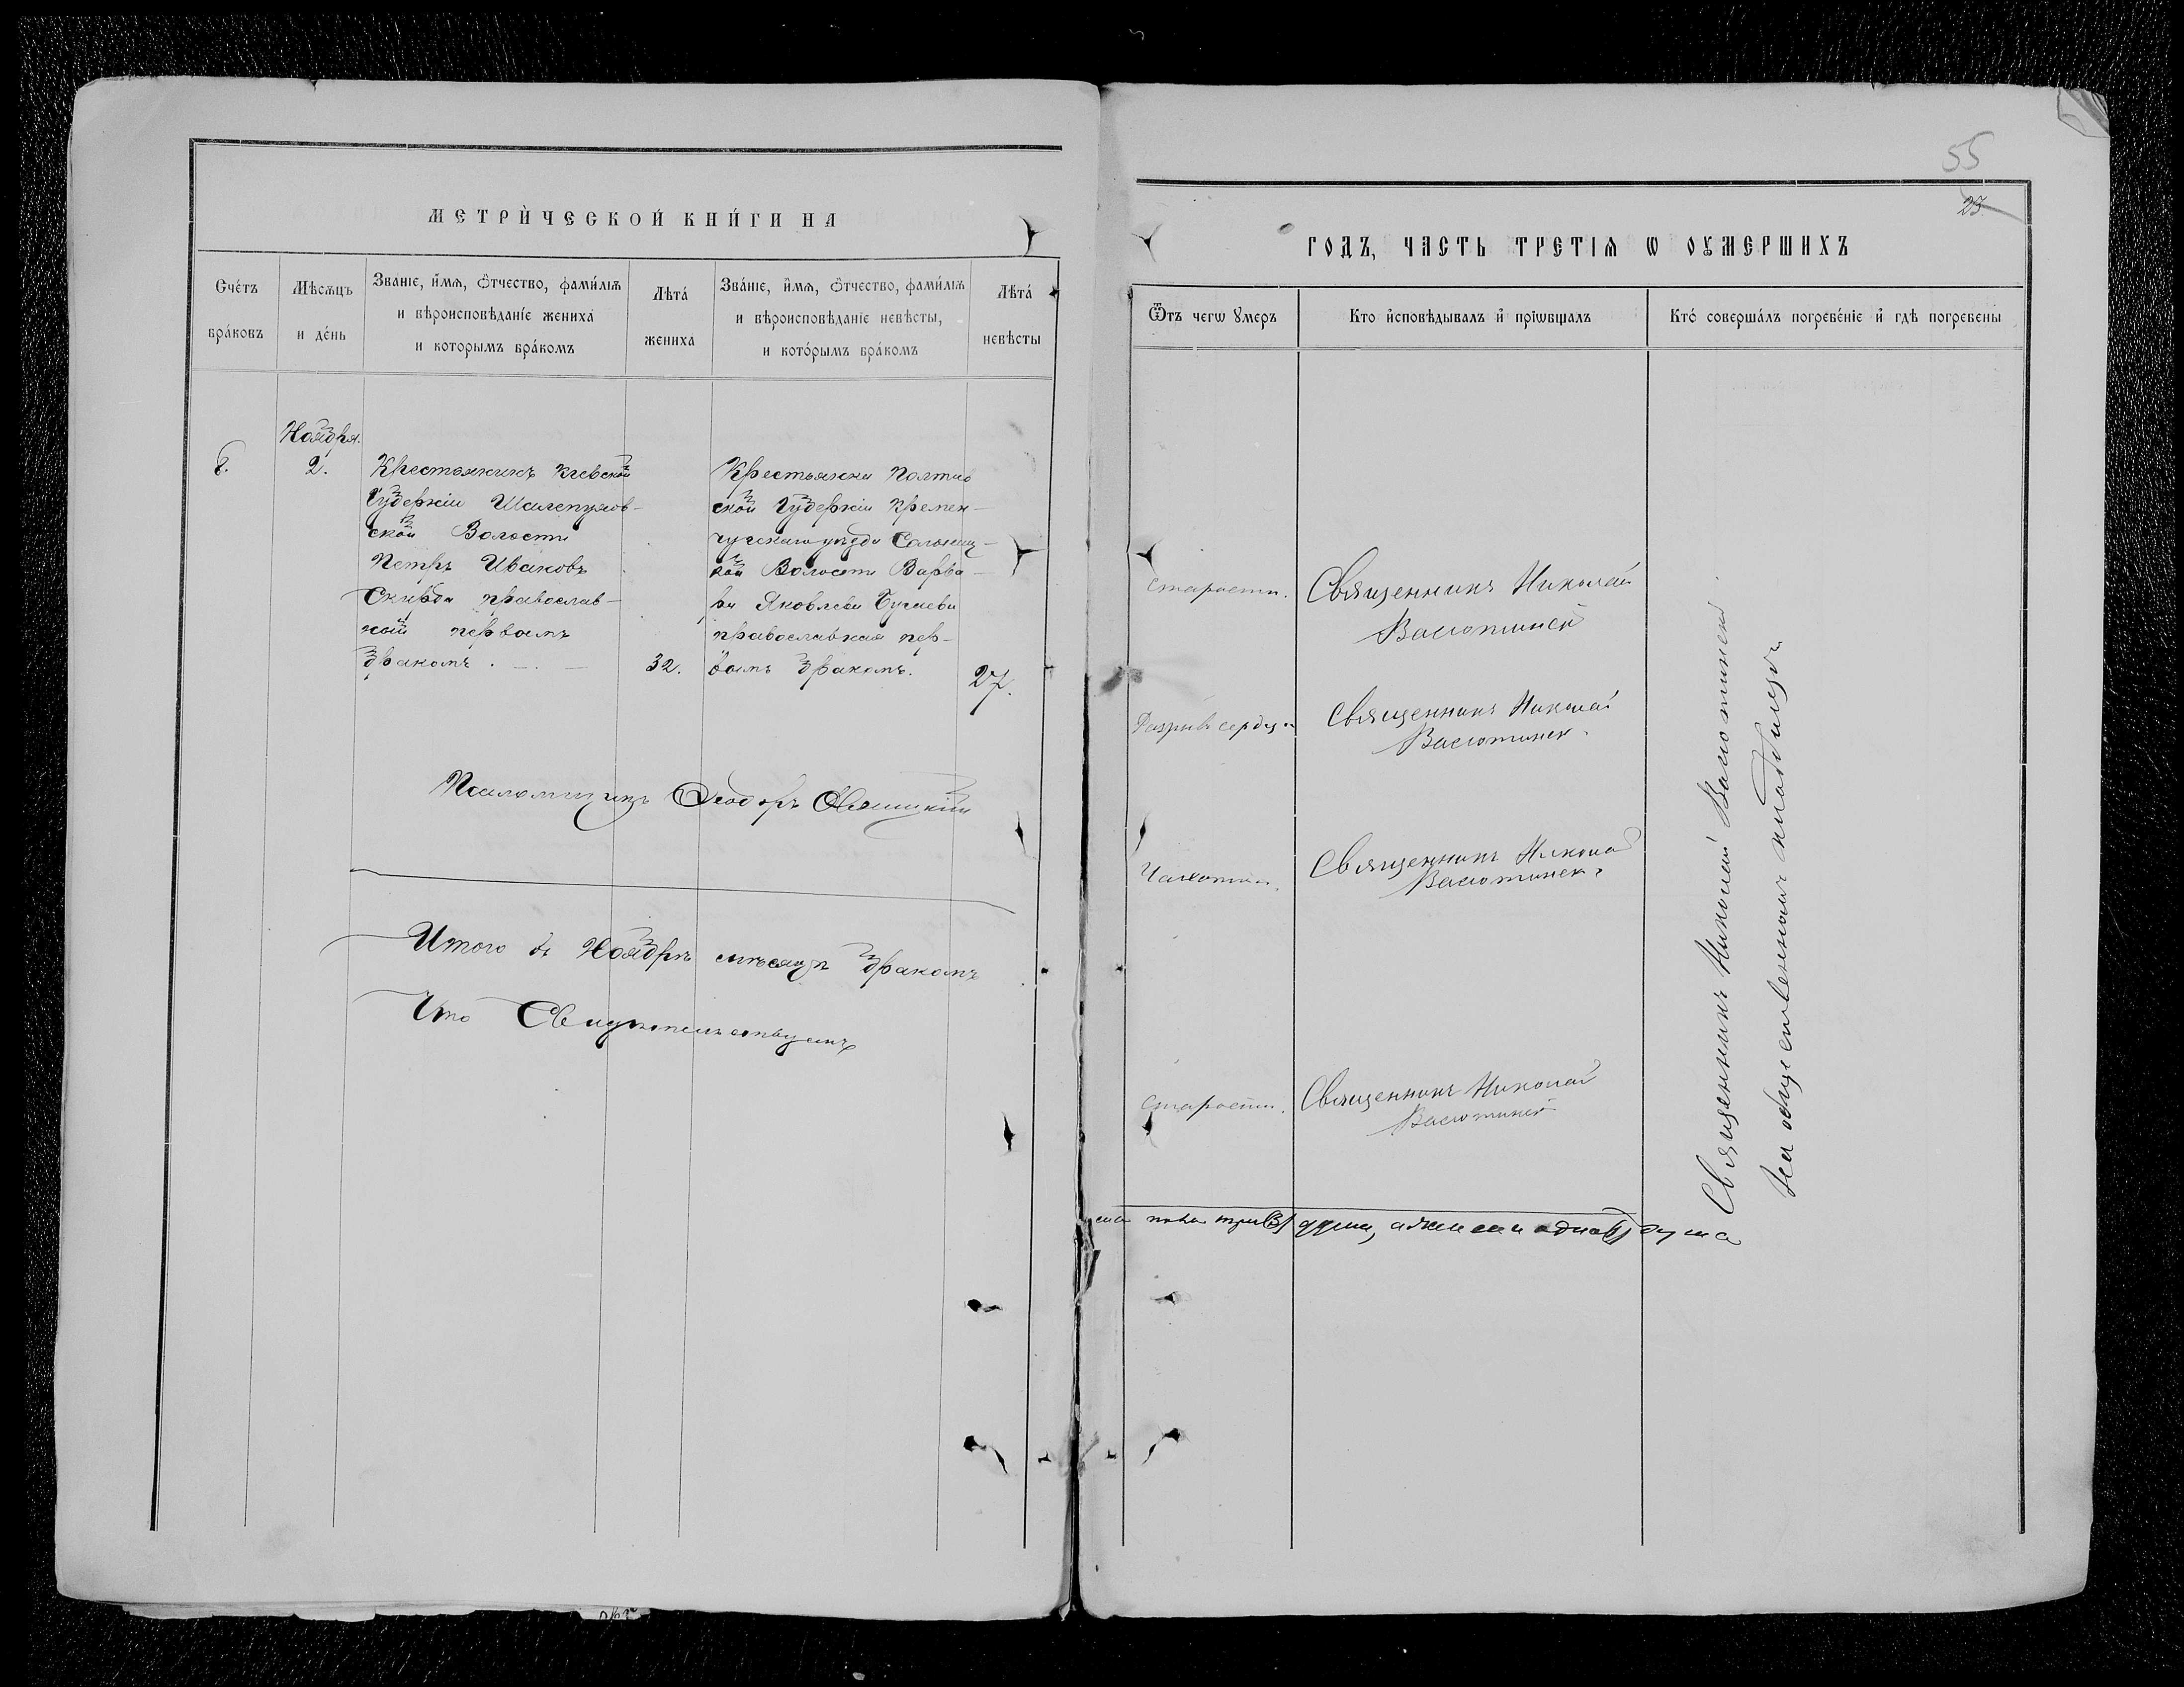 МЕТРИ́ЧЕСКОЙ КНИ́ГИ НА
Счéтъ брáковъ
Мѣсѧцъ и дéнь
Звáнїе, и́мѧ, ѻ҆́тчество, фами́лїѧ и вѣроисповѣ́данїе женихá и которымъ брáкомъ
Лѣтá жениха
Звáнїе, и́мѧ, ѻ҆́тчество, фами́лїѧ и вѣроисповѣ́данїе невѣ́сты, и котóрымъ брáкомъ
Лѣтá невѣсты
Ноября.
2.
Крестьянинъ Кіевской
Губерніи
ской Волости
Петръ Ивановъ
Скирда православ-
ный первымъ
бракомъ.
32.
Крестьянка Полтав
ской Губерніи Кремен-
чугскаго уѣзда
кой Волости Варва-
ра Яковлева Бугаева
православная пер-
вымъ бракомъ.
27.
Псаломщикъ Ѳеодоръ
Итого въ Ноябрѣ мѣсяцѣ бракомъ
Что Свидѣтельствуемъ
55
23.
ГОДЪ, ЧАСТЬ ТРЕТІѦ Ѡ ОУМЕРШИХЪ
Ѿтъ чегѡ ᲂумеръ
Кто и҆сповѣдывалъ и҆ прїѡбщалъ
Ктó совершáлъ погребéнїе и҆ гдѣ погребены
Старости.
Священникъ Николай
Васютинскій
Разрывъ сердца
Священникъ Николай
Васютинск.
Чахотки.
Священникъ Николай
Васютинск.
Старости.
Священникъ Николай
Васютинскій
Священникъ Николай Васютинскій.
На общественномъ кладбищѣ
пола три (3) души, а женска одна (1) душа